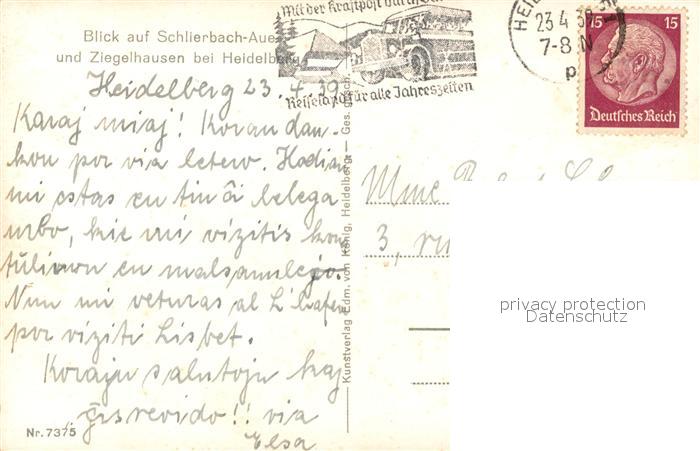 Blick auf Schlierbach-Aue
und Ziegelhausen bei Heidelberg
Mit der Kraftpost durch
Reiseland für alle Jahreszeiten
23.4.39
7-8 N
15 15
Deutsches Reich
Heidelberg 23.4.39
Karaj miaj! Koran dan-
kon por via letero. Hodiaŭ
mi estas en tiu ĉi belega
urbo, kie mi vizitis kon
tulinon en malsanulejo.
Nun mi veturas al L'hafen
por viziti Lisbet.
Korajn salutojn kaj
ĝis revido!! via
Elsa
Nr. 7375
Kunstverlag Edm. von König, Heidelberg. Ges. gesch.
Mme
3, ru
privacy protection
Datenschutz